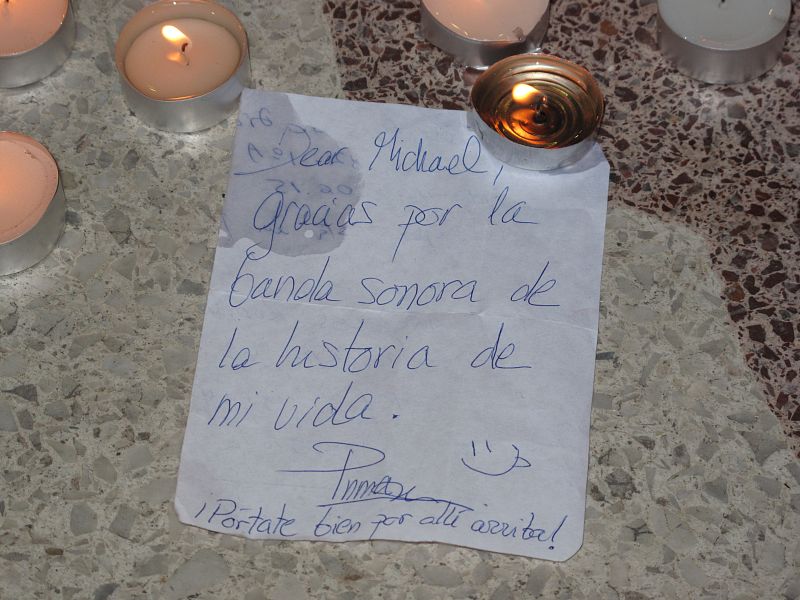 Dear Michael,
gracias por la
banda sonora de
la historia de
mi vida.
¡Pórtate bien por allí arriba!